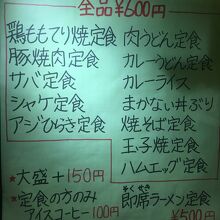 全品¥600円
鶏ももてり焼定食
豚焼肉定食
サバ定食
シャケ定食
アジひらき定食
肉うどん定食
カレーうどん定食
カレーライス
まかない丼ぶり
焼そば定食
玉子焼定食
ハムエッグ定食
★大盛+150円
★定食の方のみ
アイスコーヒー100円
そくせき
即席ラーメン定食
¥500円